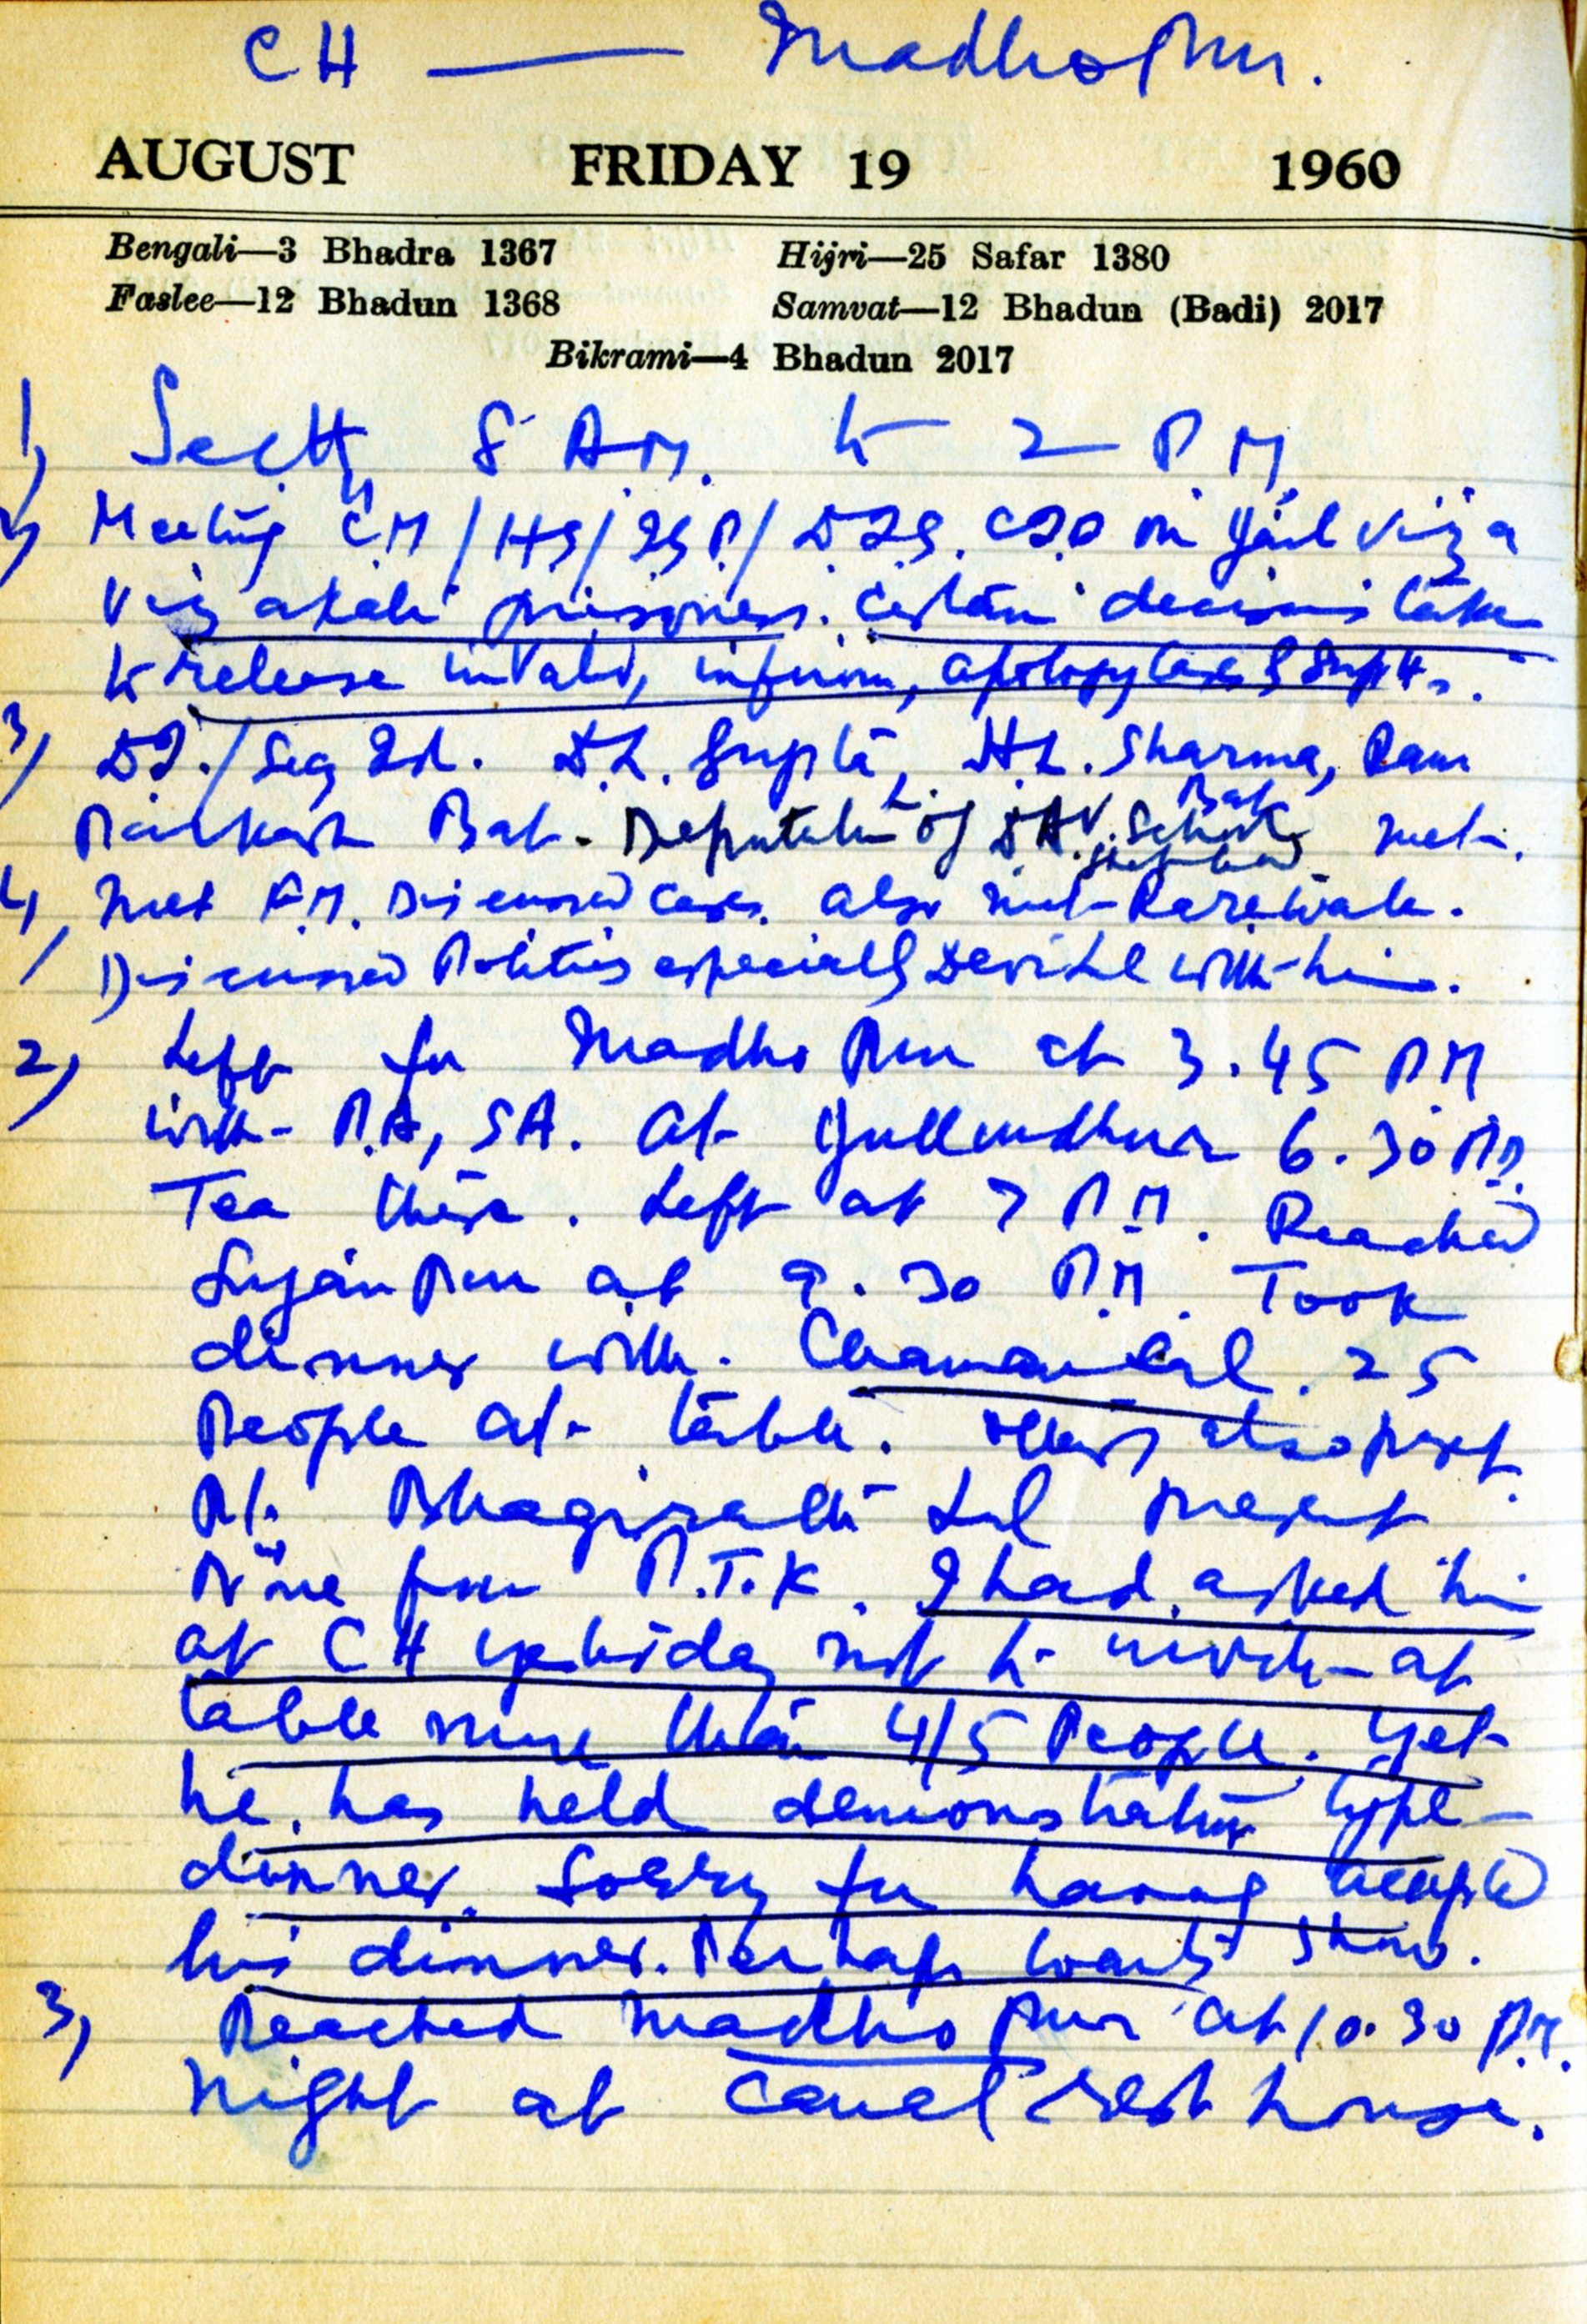 CH — Madhopur.
AUGUST FRIDAY 19 1960
Bengali—3 Bhadra 1367 Hijri—25 Safar 1380
Faslee—12 Bhadun 1368 Samvat—12 Bhadun (Badi) 2017
Bikrami—4 Bhadun 2017
1, Sectt 8 AM. to 2 PM
2, Meeting CM/HS/IGP/DIG. CID on Jail viz a
viz akali prisoners. Certain decisions taken
to release invalid, infirm,
3, DI./ Ed. D.L. Gupta, H.L. Sharma, Ram
Parkash Bat. Deputation of DAV. School met.
4, Met F.M. Discussed cases. also met Rarewala.
Discussed Politics especially Devi Lal with him.
2, Left for Madhopur at 3.45 PM
with P.A, SA. At Jullundhur 6.30 PM.
Tea there. Left at 7 PM. Reached
Sujanpur at 9.30 P.M. Took
dinner with. Chamanlal. 25
People at table. others also
Pt. Bhagirath Lal present
None from P.T.K. I had asked him
at CH yesterday not to invite at
table more than 4/5 People. Yet
he has held demonstration type
dinner. Sorry for having accepted
his dinner. Perhaps wants show.
3, Reached Madhopur at 10.30 P.M.
Night at canal rest house.